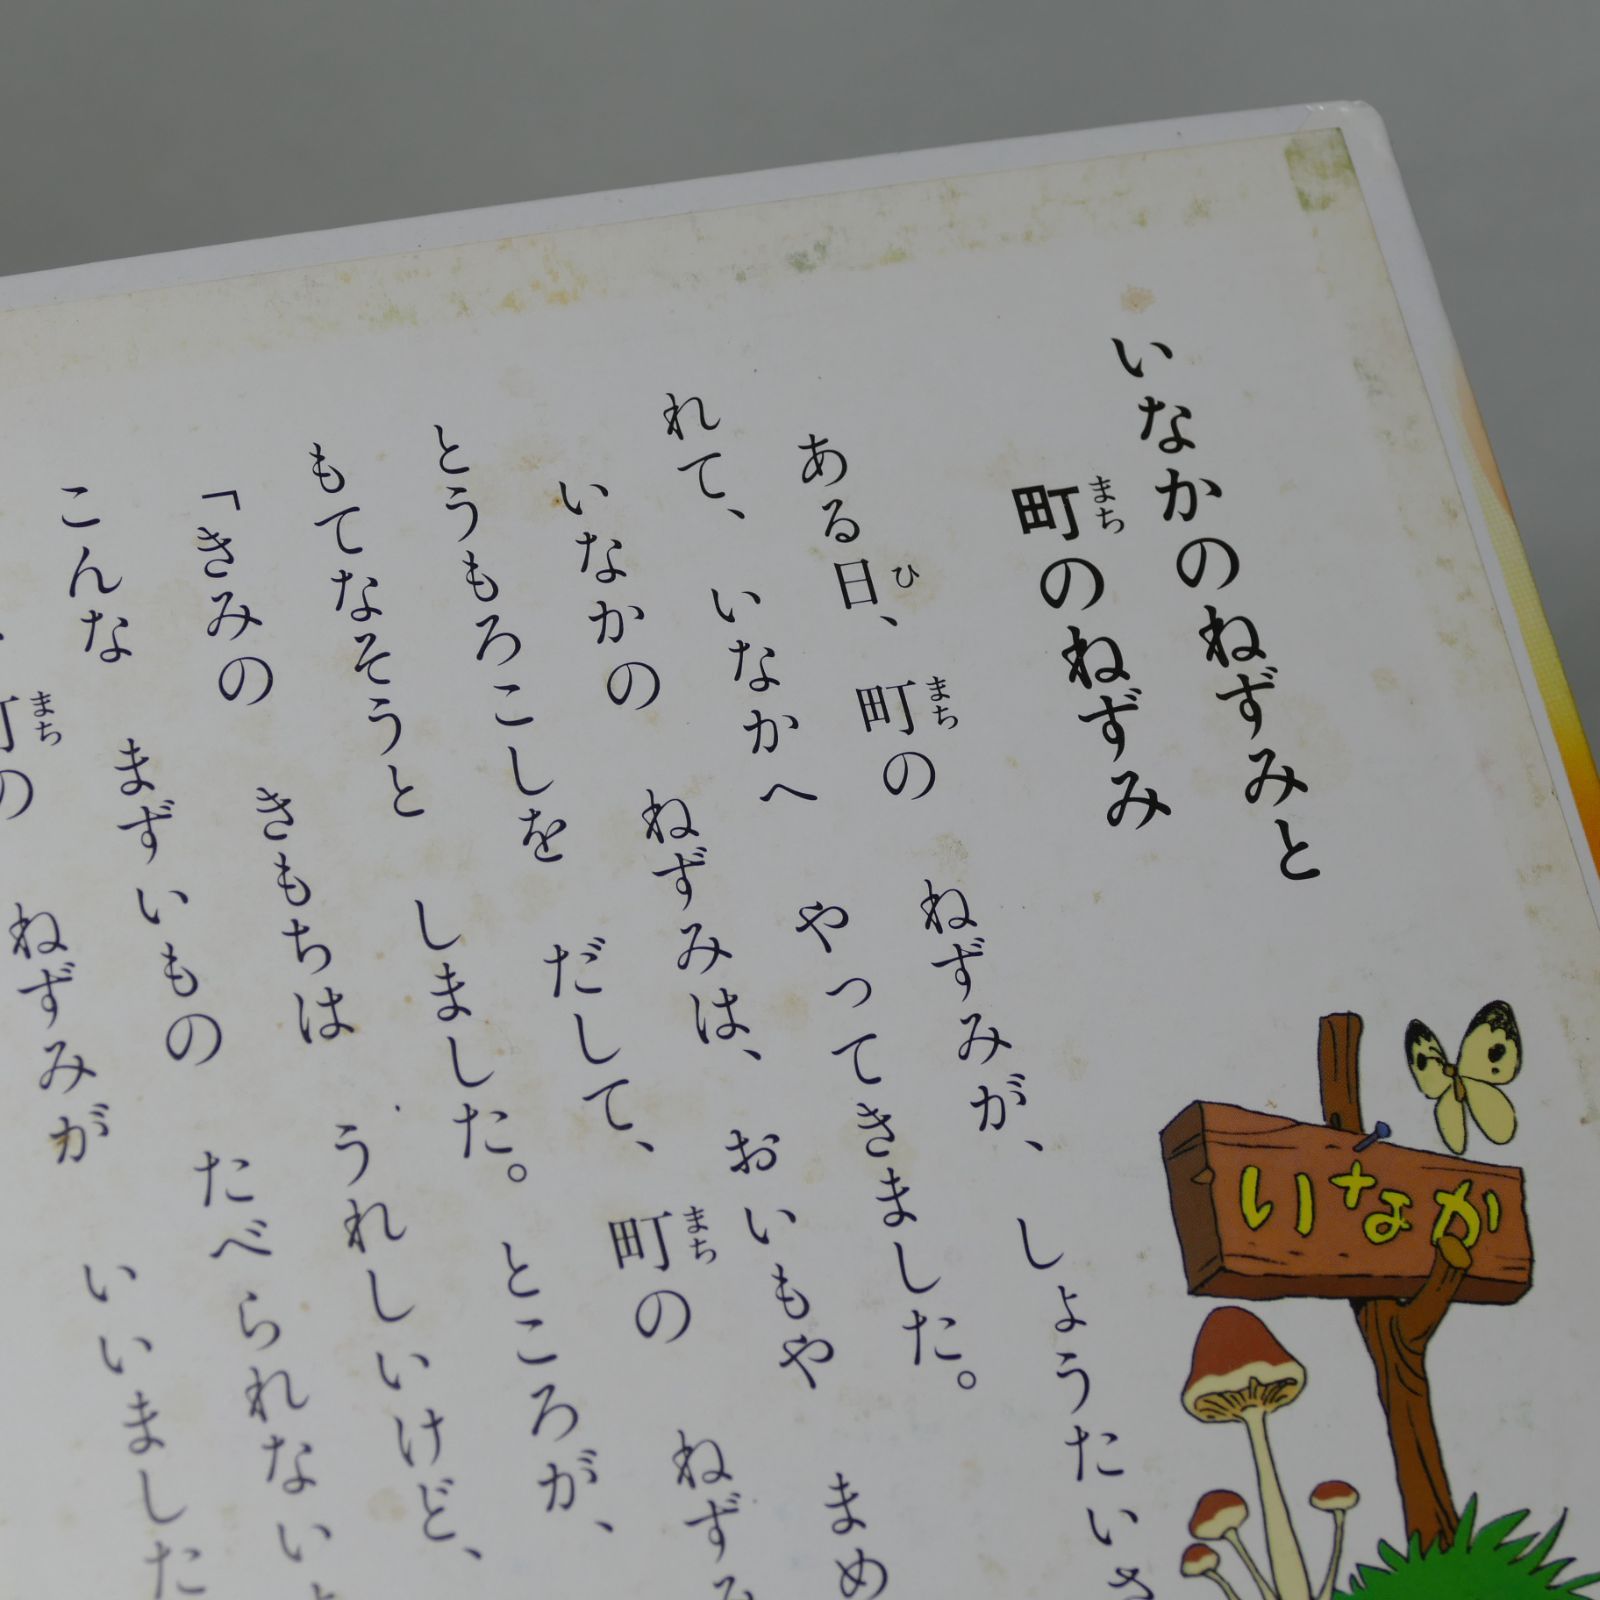 いなかのねずみと
町のねずみ
まち
ある日、町の ねずみが、しょうたいさ
ひ
まち
れて、いなかへ やってきました。
いなかの ねずみは、おいもや まめ
とうもろこしを だして、町の ねずみ
まち
もてなそうと しました。ところが、
「きみの きもちは うれしいけど、
こんな まずいもの たべられない
町の ねずみが いいました
まち
いなか